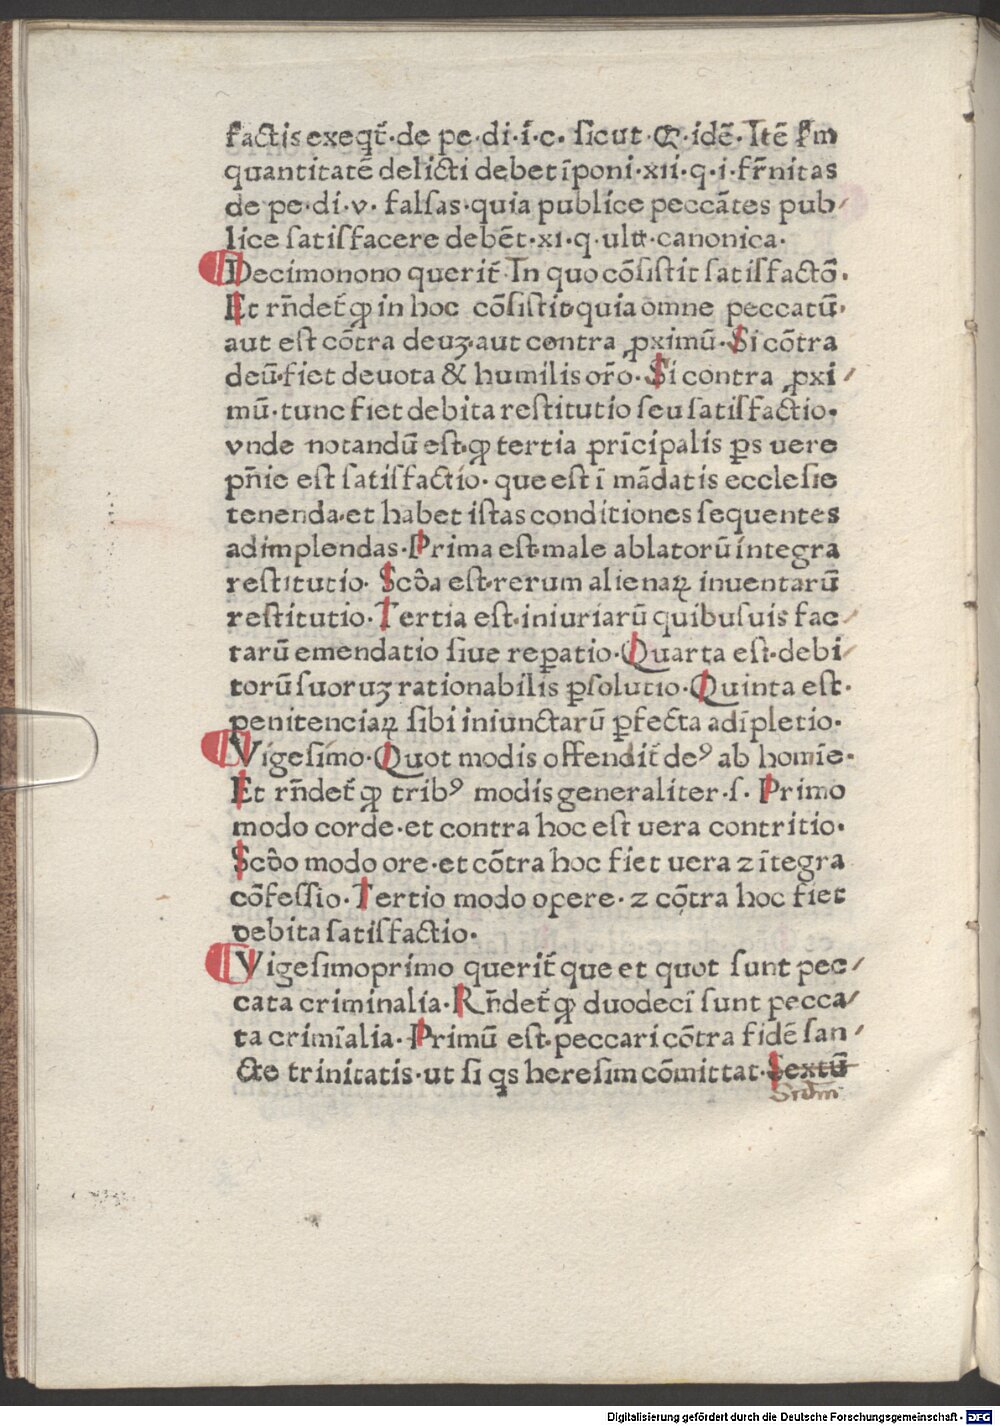 factis exeqt̄·de pe·di·ī·c· sicut Q̄·idē·Itē ẜm
quantitatē delicti debet īponi·xii·q·i·fr̄nitas
de pe·di·v· falſas·quia publice peccātes pub⸗
lice ſatiſfacere debēt·xi·q·ult̄·canonica·
Decimonono querit̄·In quo cōſiſtit ſatiſfactō·
Et rn̄det̄ ꝙ in hoc cōſiſtit·quia omne peccatū·
aut eſt cōtra deuꝫ·aut contra ꝓximū·Si cōtra
deū·fiet deuota & humilis or̄o·Si contra ꝓxi⸗
mū·tunc fiet debita reſtitutio ſeu ſatiſfactio·
vnde notandū eſt·ꝙ tertia prīcipalis ꝑs uere
pn̄ie eſt ſatiſfactio·que eſt ī mādatis eccleſie
tenenda·et habet iſtas conditiones ſequentes
adimplendas·Prima eſt·male ablatorū integra
reſtitutio· Scōa eſt·rerum alienaꝝ inuentarū
reſtitutio·Tertia eſt·iniuriarū quibuſuis fac⸗
tarū emendatio ſiue reꝑatio·Quarta eſt·debi⸗
torū ſuoruꝫ rationabilis ꝑſolutio·Quinta eſt·
penitenciaꝝ ſibi iniunctarū ꝑfecta adīpletio·
Vigeſimo·Quot modis offendit̄ deꝰ ab homīe·
Et rn̄det̄ ꝙ tribꝰ modis generaliter·ſ· Primo
modo corde·et contra hoc eſt uera contritio·
Scōo modo ore·et cōtra hoc fiet uera ⁊ ītegra
cōfeſſio·Tertio modo opere·⁊ cōtra hoc fiet
debita ſatiſfactio·
Vigeſimoprimo querit̄ que et quot ſunt pec⸗
cata criminalia·Rn̄det̄ ꝙ duodecī ſunt pecca⸗
ta crimīalia·Primū eſt·peccari cōtra fidē ſan⸗
cte trinitatis·ut ſi qs hereſim cōmittat·Sextū
Scdm̄
Digitalisierung gefördert durch die Deutsche Forschungsgemeinschaft - DFG